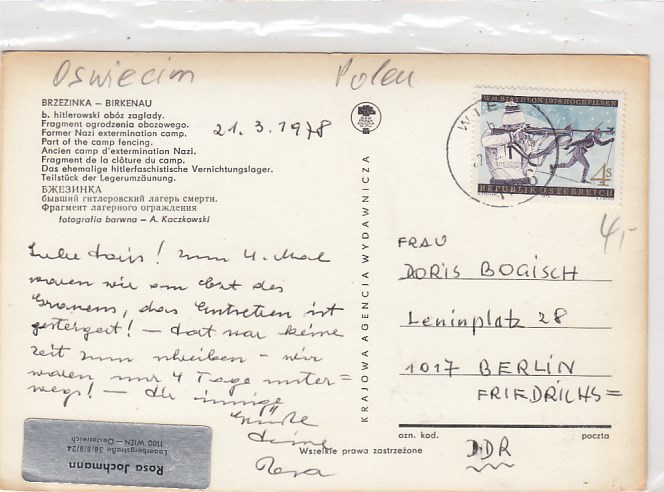 Oswiecim Polen
BRZEZINKA – BIRKENAU
b. hitlerowski obóz zagłady.
Fragment ogrodzenia obozowego.
Former Nazi extermination camp.
Part of the camp fencing.
Ancien camp d'extermination Nazi.
Fragment de la clôture du camp.
Das ehemalige hitlerfaschistische Vernichtungslager.
Teilstück der Legerumzäunung.
БЖЕЗИНКА
бывший гитлеровский лагерь смерти.
Фрагмент лагерного ограждения
fotografia barwna – A. Kaczkowski
21. 3. 1978
Liebe Doris! zum 4. Mal
waren wir am Ort des
Grauens, das Entsetzen ist
! – dort war keine
Zeit zum schreiben – wir
waren nur 4 Tage unter=
wegs! – die innige
Grüße
Deine
Rosa
Rosa Jochmann
1100 WIEN – Oesterreich
KRAJOWA AGENCJA WYDAWNICZA
WM-BIATHLON 1978 HOCHFILZEN
4s
REPUBLIK ÖSTERREICH
WIE
4,-
FRAU
DORIS BOGISCH
Leninplatz 28
1017 BERLIN
FRIEDRICHS=
DDR
ozn. kod. poczta
Wszelkie prawa zastrzeżone